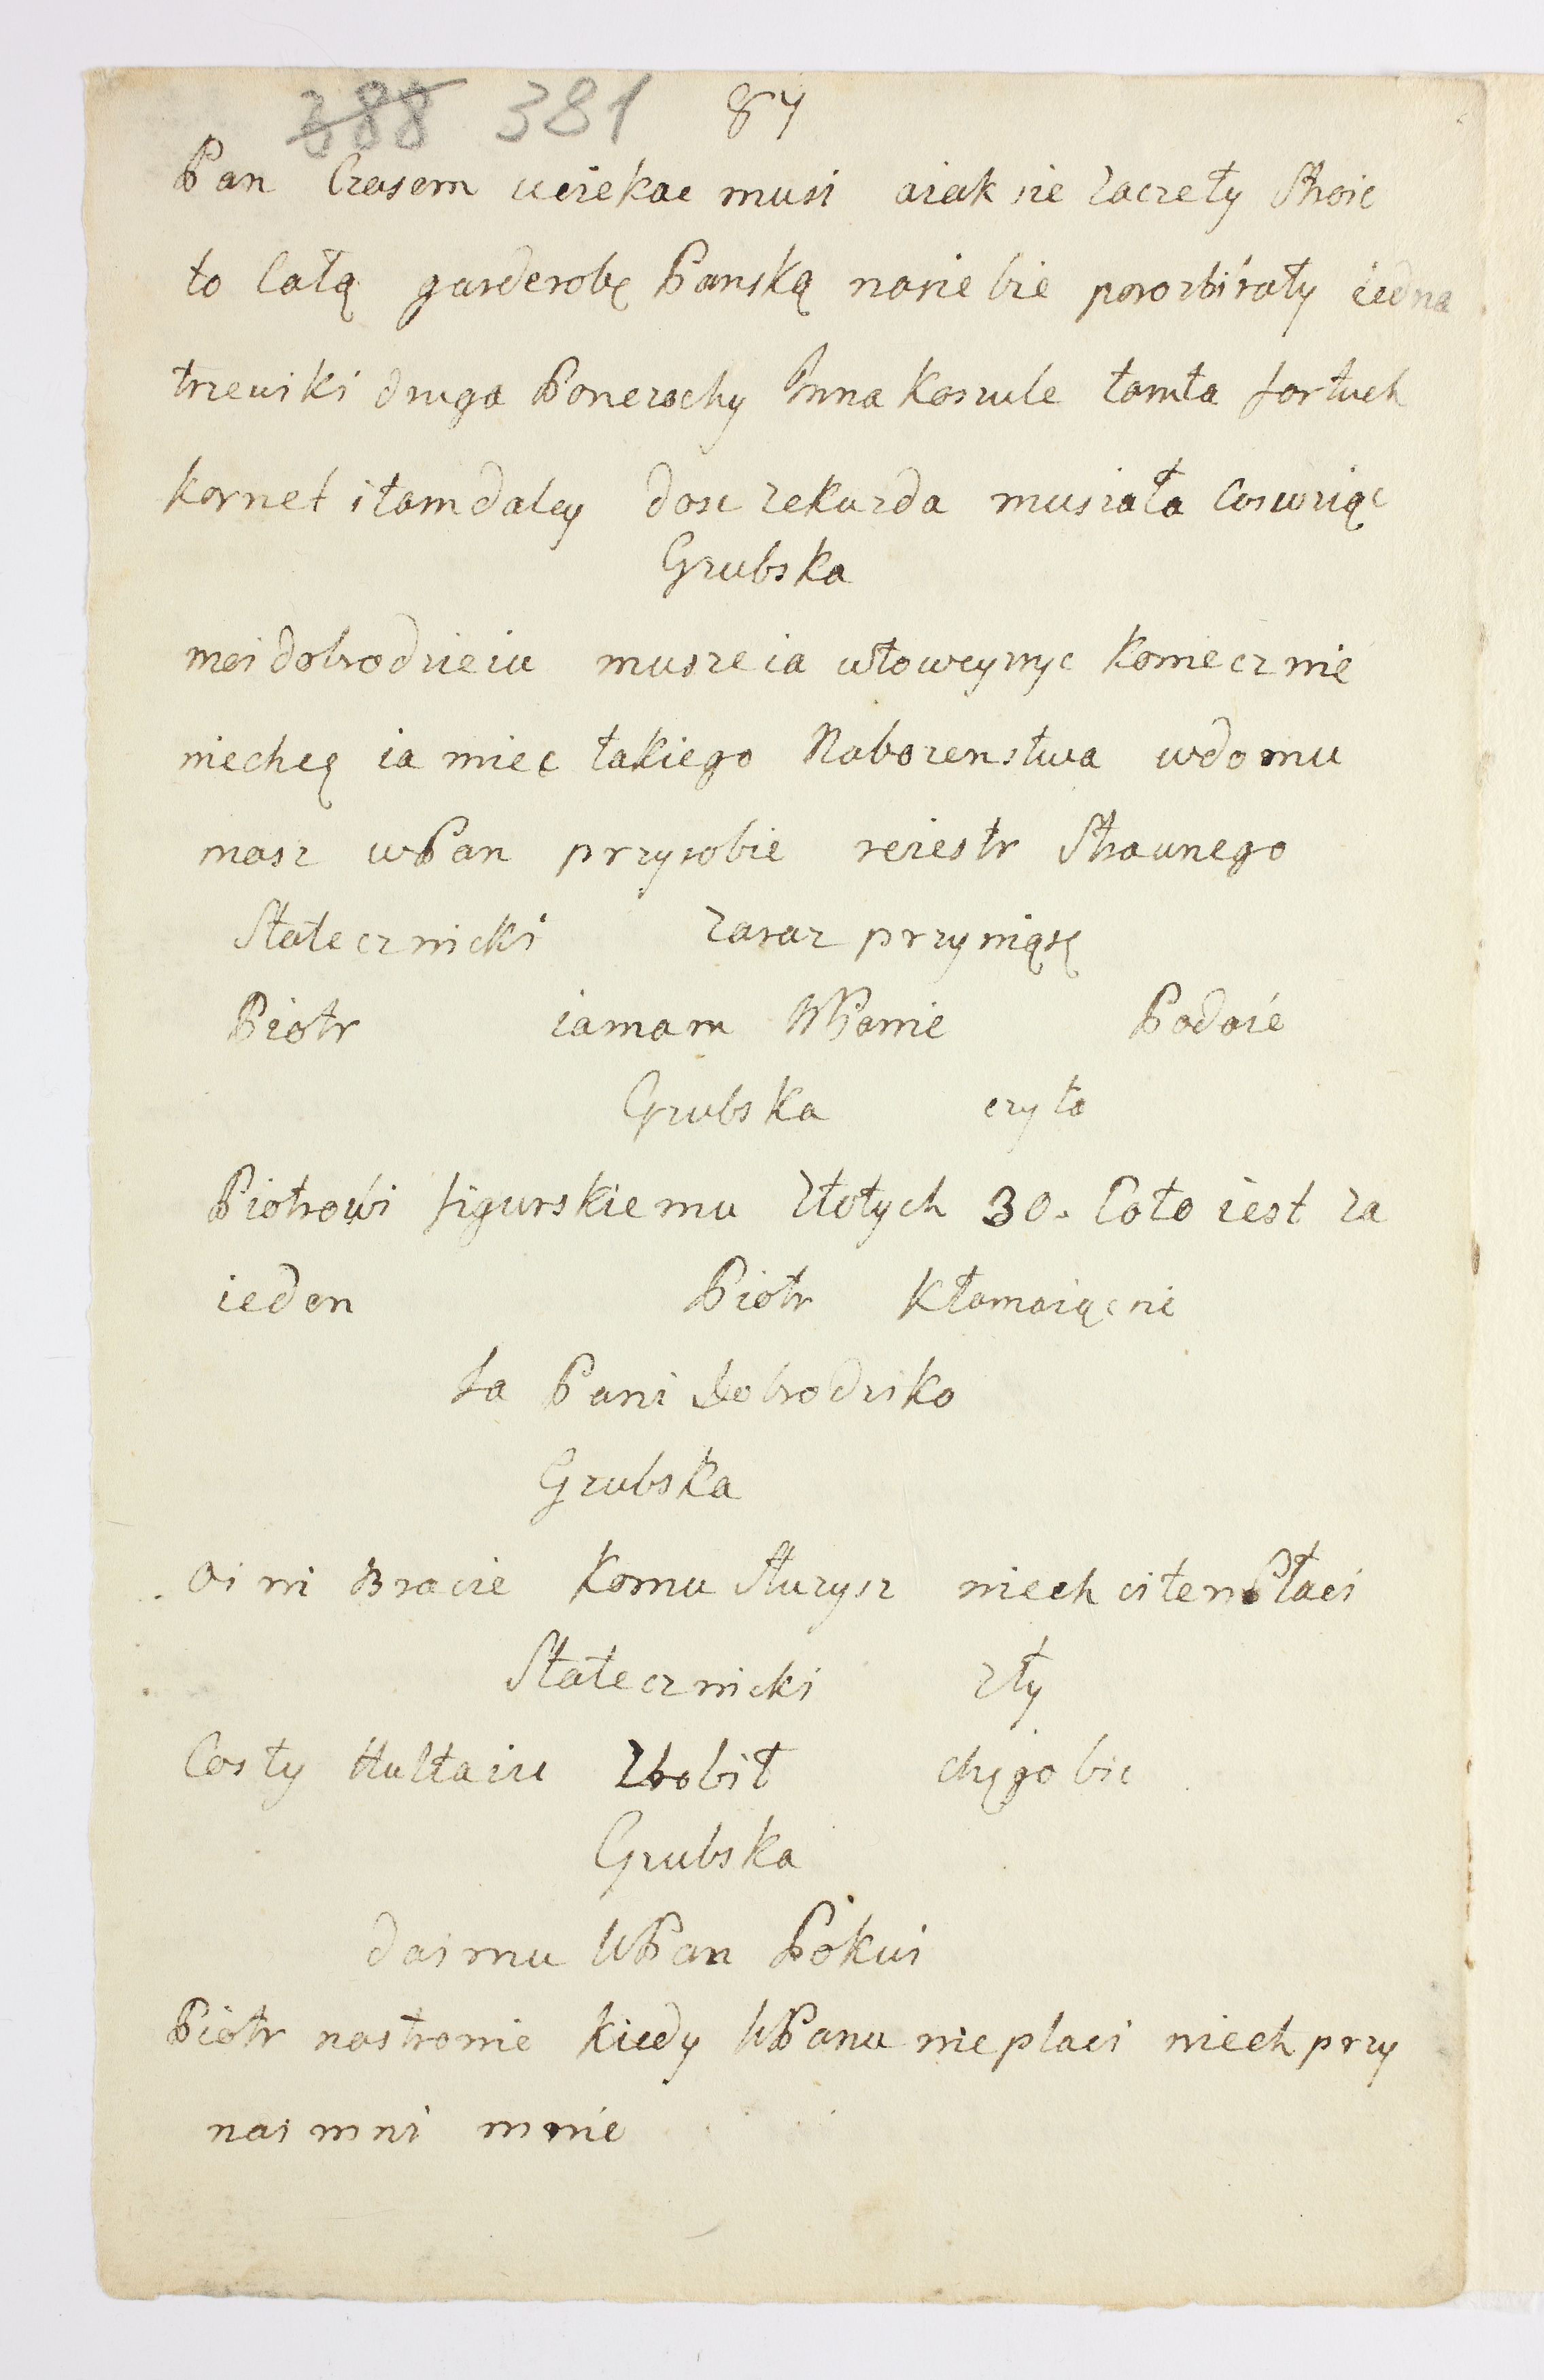 388 381 84
Pan Czasem uciekac musi aiak sie zaczeły Stroic
to Całą garderobę Panską nasiebie porozbirały iedna
trzewiki druga Ponczochy Inna Koszule tamta fartuch
kornet i tamdaley dosc ze Kuzda musiała Coswziąc
Grubska
moi dobrodzieiu musze ia wtowcyzyc Koniecznie
niechcę ia miec takiego Nabozenstwa wdomu
masz wPan przysobie reiestr Strawnego
Statecznicki Zaraz przyniąsę
Piotr iamam WPanie Podaie
Grubska czyta
Piotrowi figurskiemu Złotych 30. Coto iest za
ieden Piotr Kłamaiąc sie
Ja Pani Dobrodziko
Grubska
oi ni Bracie Komu Sluzysz niech ci ten Płaci
Statecznicki zły
Cos ty Hultaiu Zrobił chęgo bic
Grubska
dai mu WPan Pokui
Piotr nastronie Kiedy WPanu nie placi niech przy
nai mni mnie